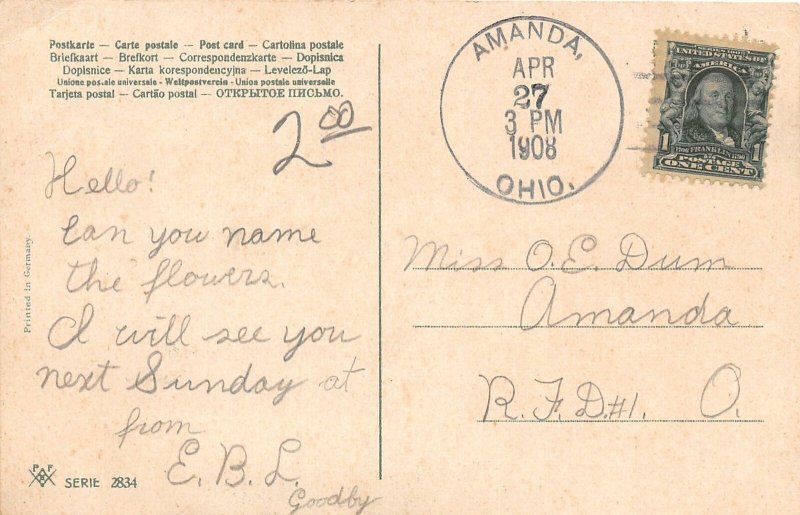 Postkarte — Carte postale — Post card — Cartolina postale
Briefkaart — Brefkort — Correspondenzkarte — Dopisnica
Dopisnice — Karta korespondencyjna — Levelezö-Lap
Unione postale universale - Weltpostverein - Union postale universelle
Tarjeta postal — Cartão postal — ОТКРЫТОЕ ПИСЬМО.
2 00
Hello!
Can you name
the flowers.
I will see you
next Sunday at
from
E. B. L.
Goodby
Printed in Germany.
P F B
SERIE 2834
AMANDA,
APR
27
3 PM
1908
OHIO.
SERIES 1902
UNITED STATES OF
AMERICA
FRANKLIN
1 POSTAGE 1
ONE CENT
Miss O. E. Dum
Amanda
R. F. D. #1. O.